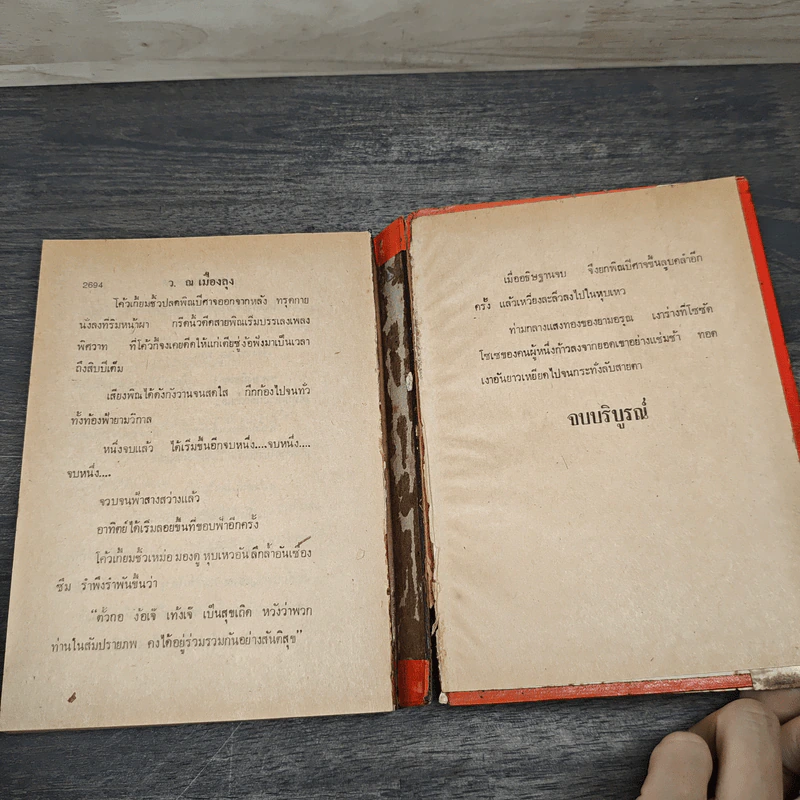 2694 ว. ณ เมืองลุง
โค้วเกี้ยมชิ้วปลดพิณปีศาจออกจากหลัง ทรุดกาย
นั่งลงที่ริมหน้าผา กรีดนิ้วดีดสายพิณเริ่มบรรเลงเพลง
พิศวาท ที่โค้วกิ้จงเคยดีดให้แก่เตียซู่ง้อฟังมาเป็นเวลา
ถึงสิบปีเต็ม
เสียงพิณได้ดังกังวานจนสดใส กึกก้องไปจนทั่ว
ทั้งท้องฟ้ายามวิกาล
หนึ่งจบแล้ว ได้เริ่มขึ้นอีกจบหนึ่ง....จบหนึ่ง....
จบหนึ่ง....
จวบจนฟ้าสางสว่างแล้ว
อาทิตย์ได้เริ่มลอยขึ้นที่ขอบฟ้าอีกครั้ง
โค้วเกี้ยมชิ้วเหม่อมองดูหุบเหวอันลึกล้ำอันเซื่อง
ซึม รำพึงรำพันขึ้นว่า
“ตั้วกอ ง้อเจ๊ เท้งเจ๊ เป็นสุขเถิด หวังว่าพวก
ท่านในสัมปรายภพ คงได้อยู่ร่วมรวมกันอย่างสันติสุข”
เมื่ออธิษฐานจบ จึงยกพิณปีศาจขึ้นลูบคลำอีก
ครั้ง แล้วเหวี่ยงละลิ่วลงไปในหุบเหว
ท่ามกลางแสงทองของยามอรุณ เงาร่างที่โซซัด
โซเซของคนผู้หนึ่งก้าวลงจากยอดเขาอย่างแช่มช้า ทอด
เงาอันยาวเหยียดไปจนกระทั่งลับสายตา
จบบริบูรณ์